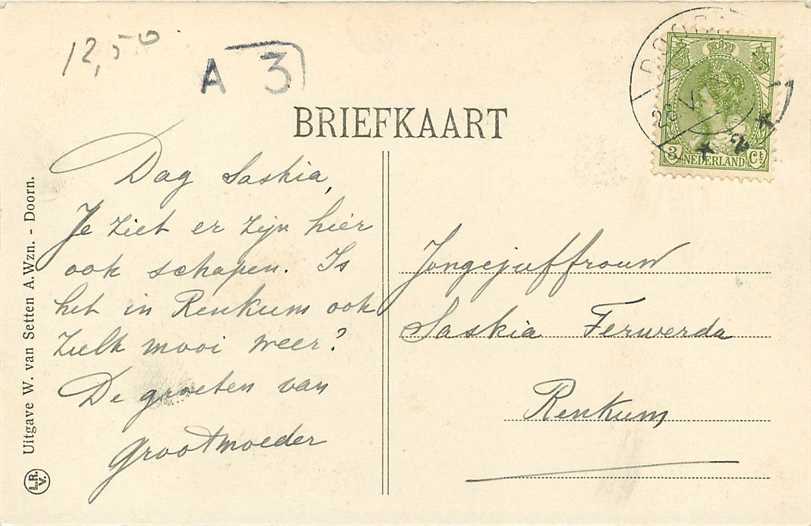 12,50
A 3
BRIEFKAART
DOORN
3 NEDERLAND Ct
Dag Saskia,
Je ziet er zijn hier
ook schapen. Is
het in Renkum ook
zulk mooi weer?
De groeten van
Grootmoeder
Jongejuffrouw
Saskia Ferwerda
Renkum
Uitgave W. van Setten A.Wzn. - Doorn.
L.R.
V.